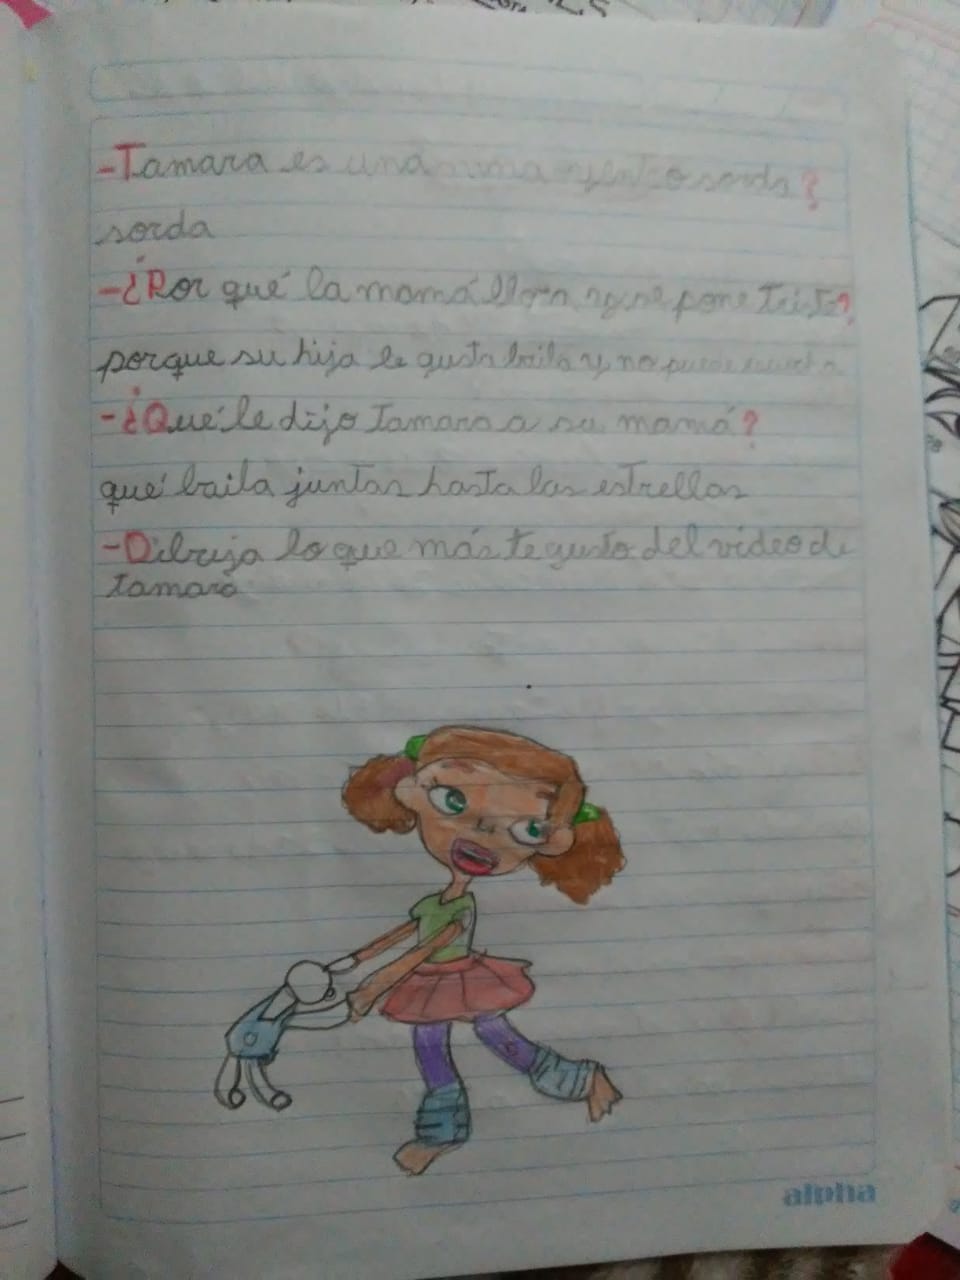 -Tamara es una niña oyente o sorda?
sorda
-¿Por qué la mamá llora y se pone triste?
porque su hija le gusta baila y no puede
-¿Qué le dijo Tamara a su mamá?
qué baila juntas hasta las estrellas
-Dibuja lo que más te gusto del video de
tamara
alpha